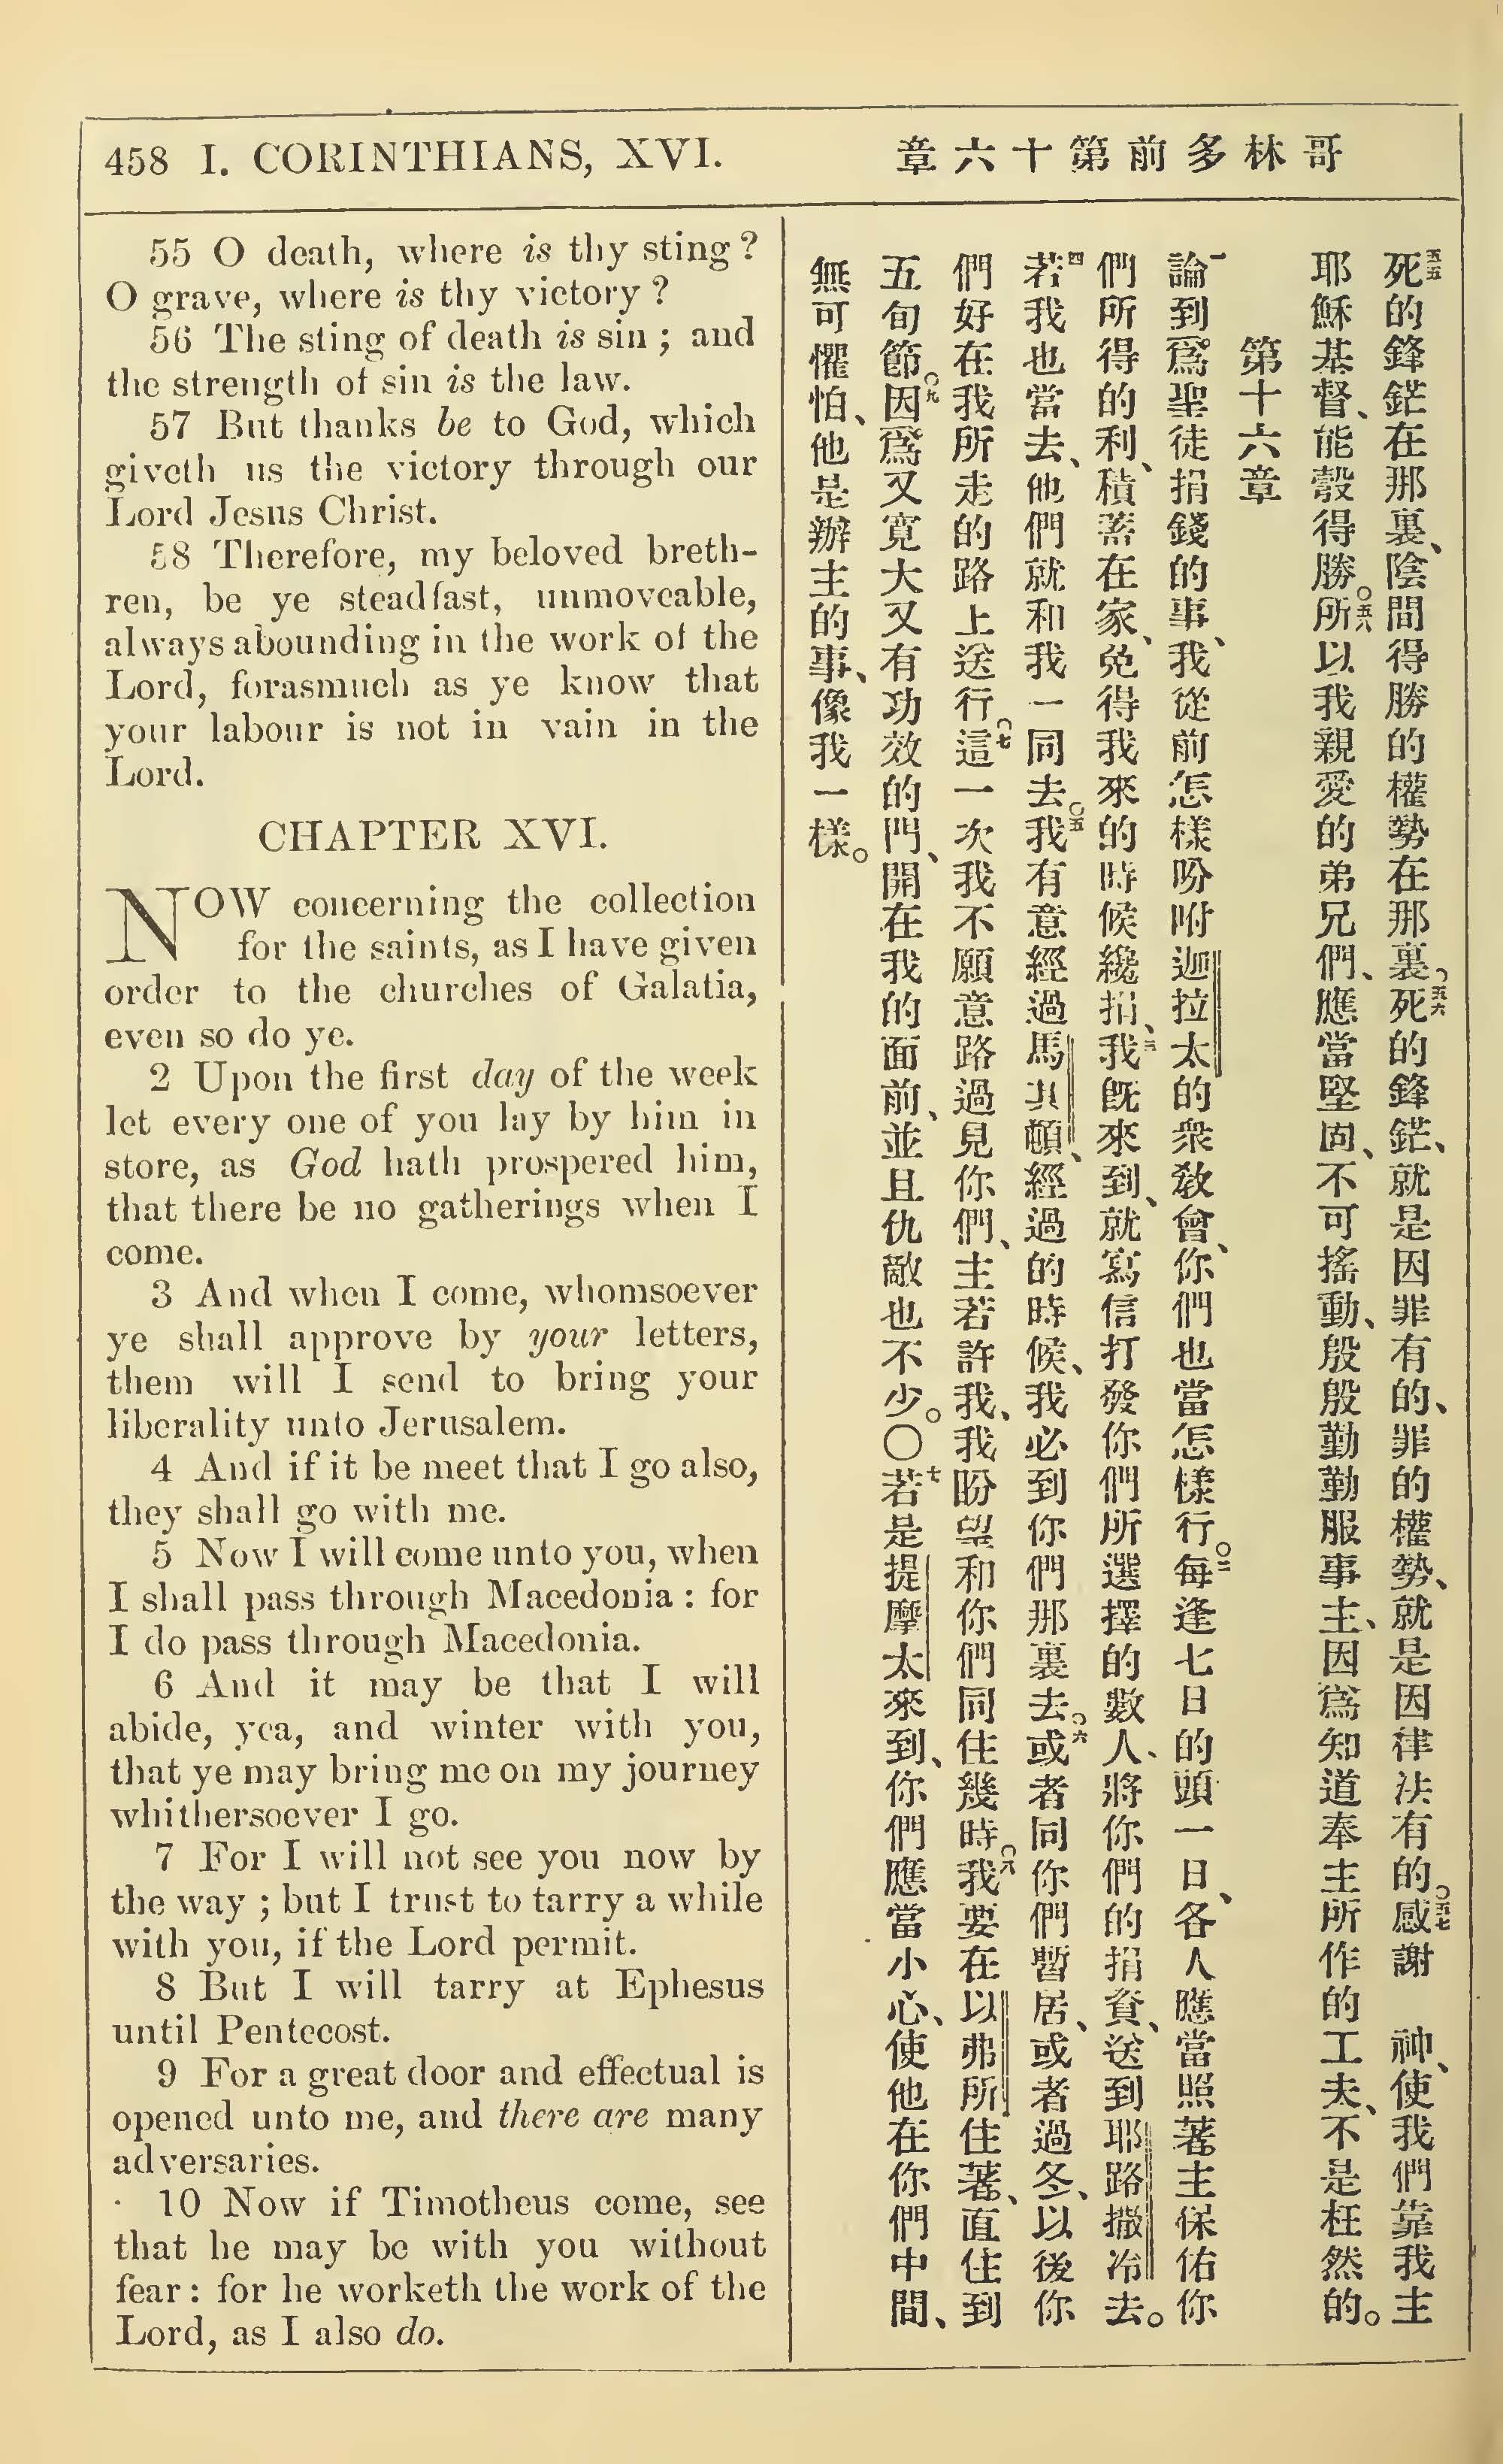 458 I. CORINTHIANS, XVI.
哥林多前第十六章
55 O death, where is thy sting?
O grave, where is thy victory?
56 The sting of death is sin; and
the strength of sin is the law.
57 But thanks be to God, which
giveth us the victory through our
Lord Jesus Christ.
58 Therefore, my beloved breth-
ren, be ye steadfast, unmoveable,
always abounding in the work of the
Lord, forasmuch as ye know that
your labour is not in vain in the
Lord.
CHAPTER XVI.
NOW concerning the collection
for the saints, as I have given
order to the churches of Galatia,
even so do ye.
2 Upon the first day of the week
let every one of you lay by him in
store, as God hath prospered him,
that there be no gatherings when I
come.
3 And when I come, whomsoever
ye shall approve by your letters,
them will I send to bring your
liberality unto Jerusalem.
4 And if it be meet that I go also,
they shall go with me.
5 Now I will come unto you, when
I shall pass through Macedonia: for
I do pass through Macedonia.
6 And it may be that I will
abide, yea, and winter with you,
that ye may bring me on my journey
whithersoever I go.
7 For I will not see you now by
the way; but I trust to tarry a while
with you, if the Lord permit.
8 But I will tarry at Ephesus
until Pentecost.
9 For a great door and effectual is
opened unto me, and there are many
adversaries.
10 Now if Timotheus come, see
that he may be with you without
fear: for he worketh the work of the
Lord, as I also do.
五五死的鋒鋩在那裏、陰間得勝的權勢在那裏、五六死的鋒鋩、就是因罪有的、罪的權勢、就是因律法有的。五七感謝 神、使我們靠我主
耶穌基督、能彀得勝。五八所以我親愛的弟兄們、應當堅固、不可搖動、殷殷勤勤服事主、因爲知道奉主所作的工夫、不是枉然的。
第十六章
一論到爲聖徒捐錢的事、我從前怎樣吩咐迦拉太的衆敎會、你們也當怎樣行。二每逢七日的頭一日、各人應當照著主保佑你
們所得的利、積蓄在家、免得我來的時候纔捐、三我旣來到、就寫信打發你們所選擇的數人、將你們的捐資、送到耶路撒冷去。
四若我也當去、他們就和我一同去。五我有意經過馬其頓、經過的時候、我必到你們那裏去。六或者同你們暫居、或者過冬、以後你
們好在我所走的路上送行。七這一次我不願意路過見你們、主若許我、我盼望和你們同住幾時。八我要在以弗所住著、直住到
五旬節。九因爲又寬大又有功效的門、開在我的面前、並且仇敵也不少。〇十若是提摩太來到、你們應當小心、使他在你們中間、
無可懼怕、他是辦主的事、像我一樣。